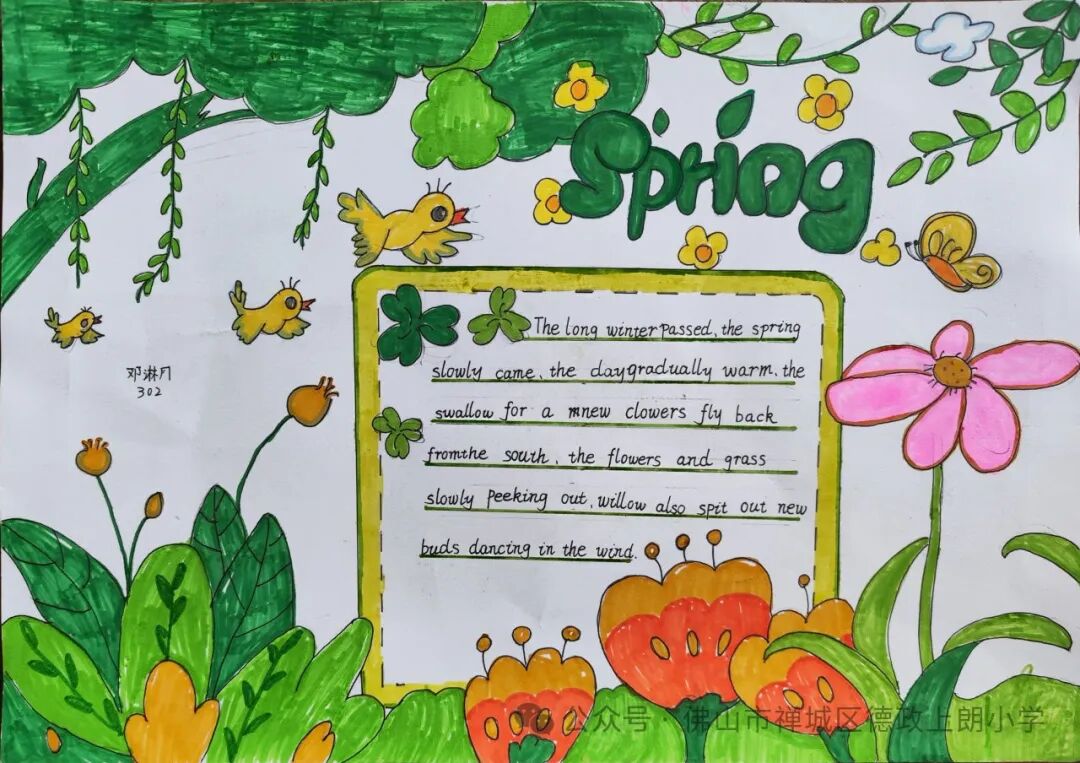 Spring
The long winter passed, the spring
slowly came, the day gradually warm, the
swallow for a mnew clowers fly back
fromthe south, the flowers and grass
slowly peeking out, willow also spit out new
buds dancing in the wind.
邓淋月
302
公众号·佛山市禅城区德政上朗小学